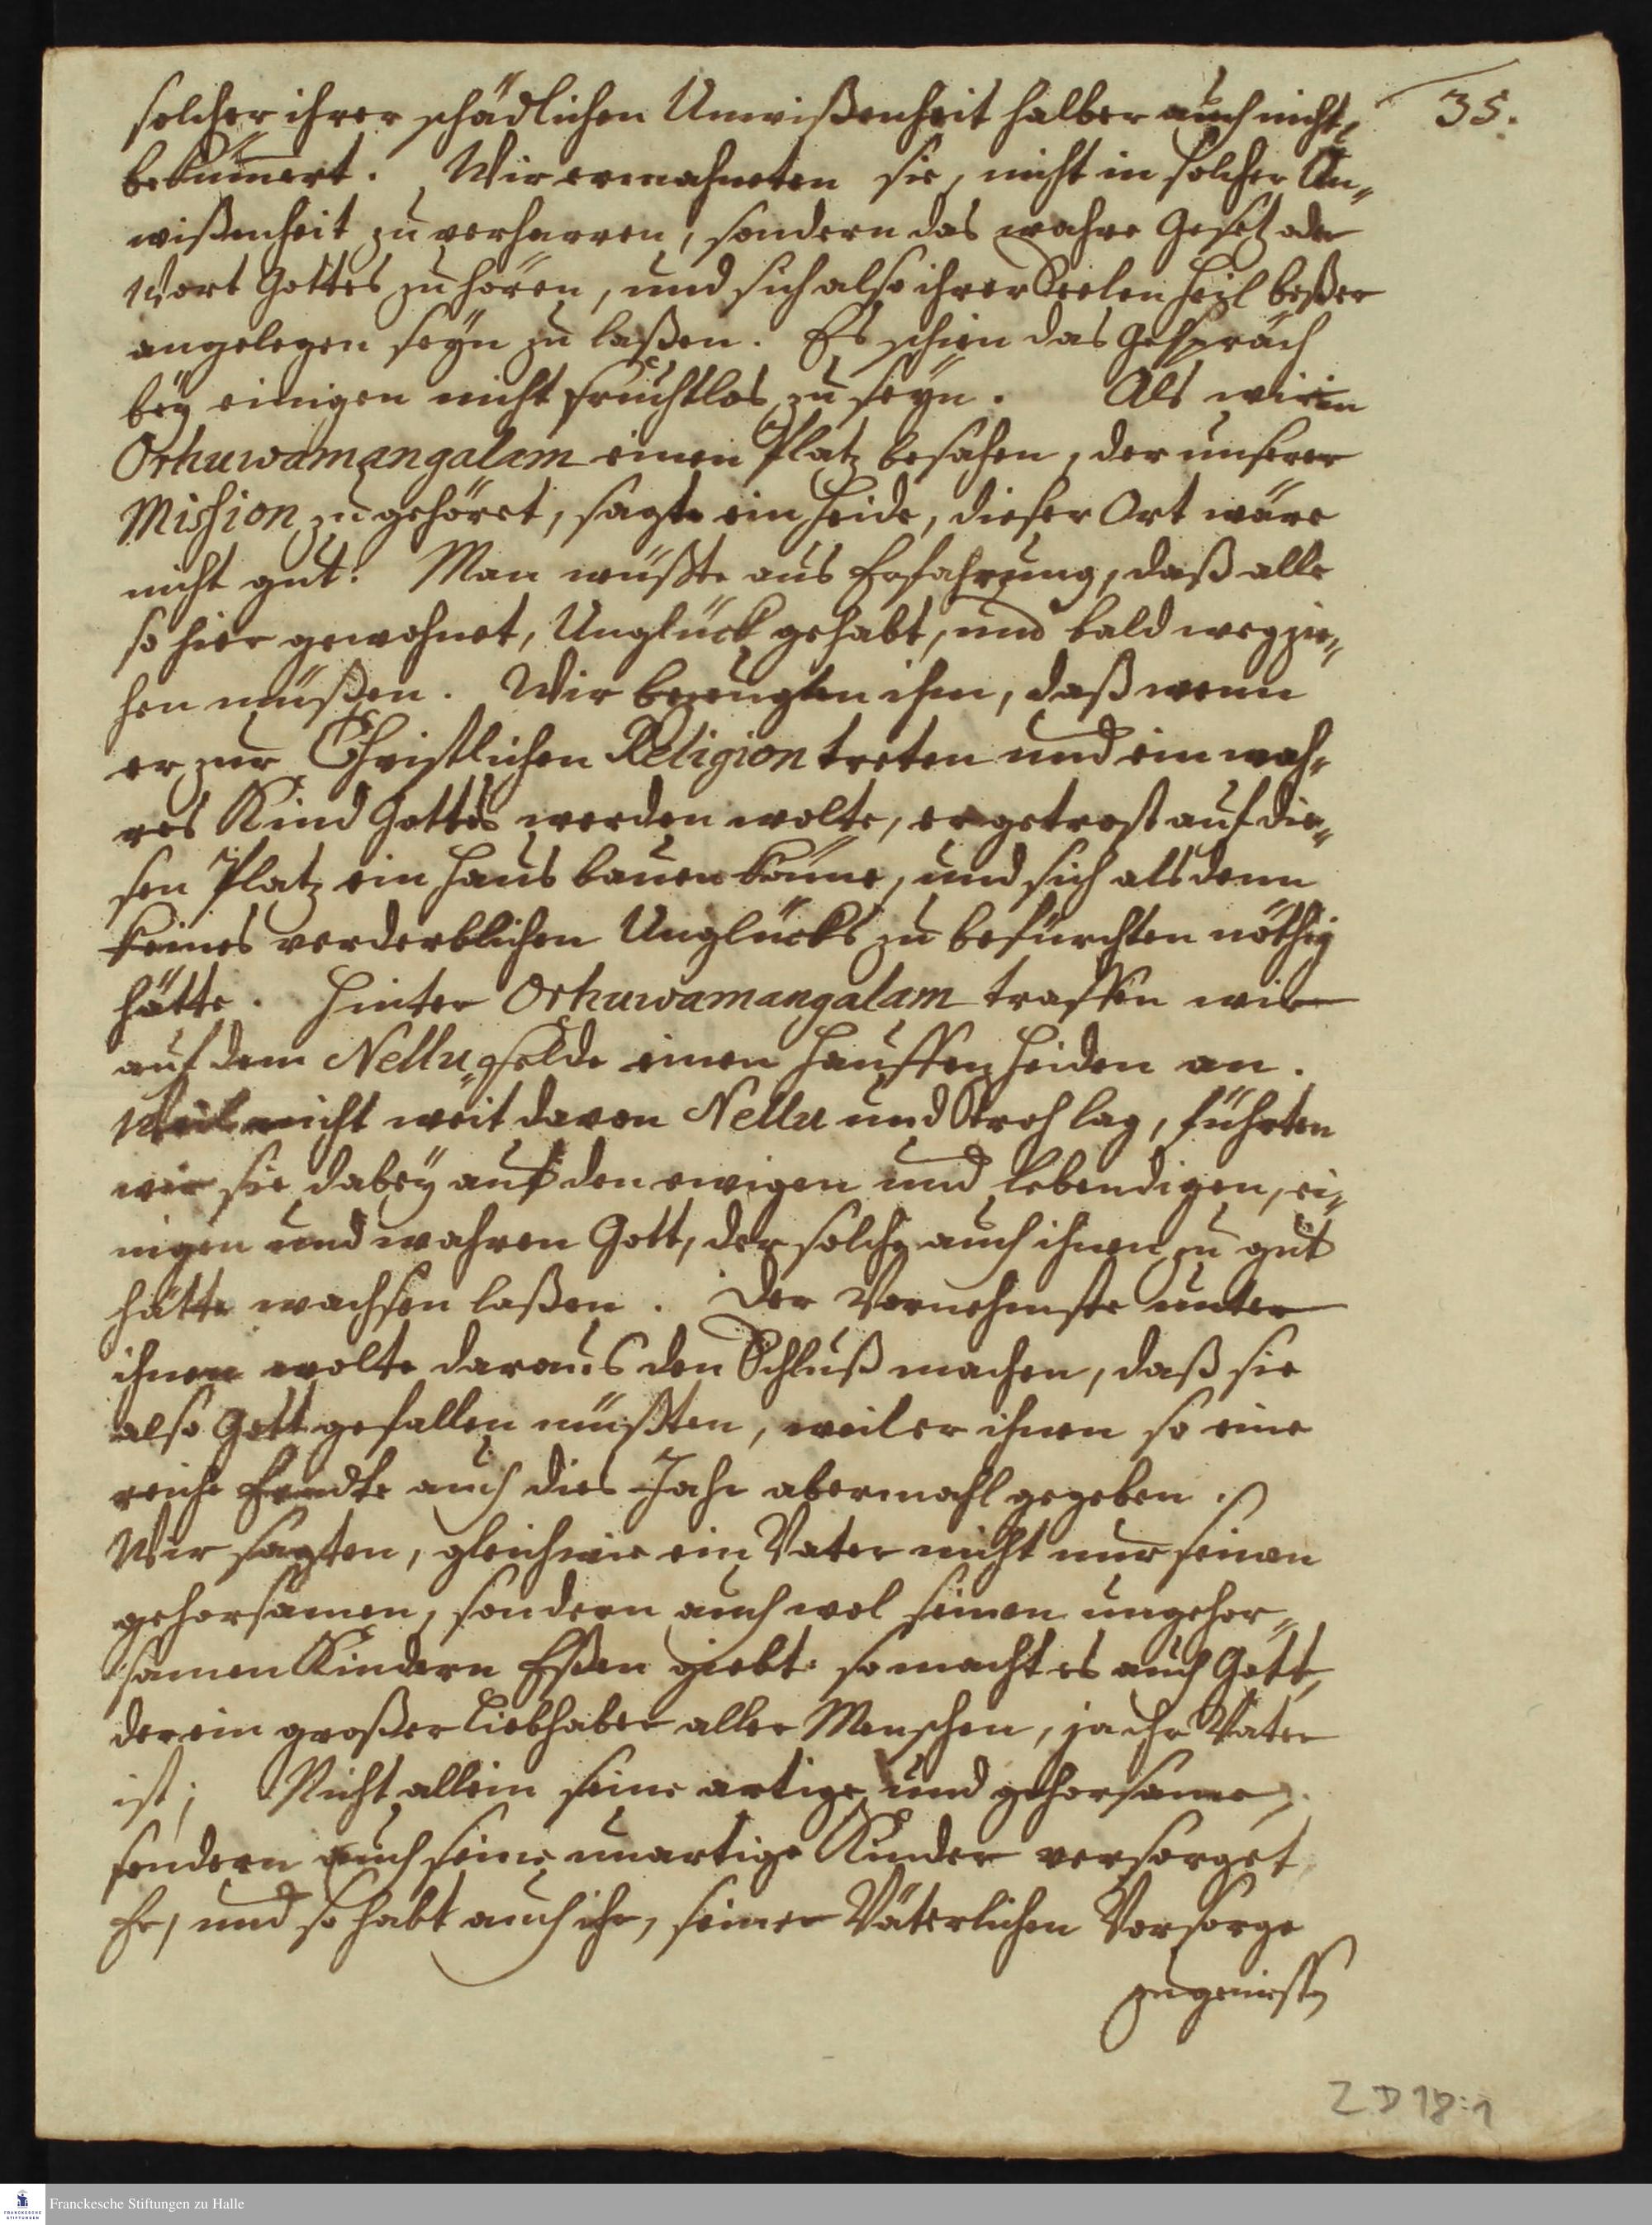 35.
solcher ihrer schädlichen Unwißenheit halber auch nicht
bekümert. Wir ermahneten sie, nicht in solcher Un-
wißenheit zu verharren, sondern das wahre Gesetz oder
Wort Gottes zu hören, und sich also ihrer Seelen Heil beßer
angelegen seyn zu laßen. Es schien das Gespräch
bey einigen nicht fruchtlos zu seyn. Als wir in
Orhuwamangalam einen Platz besahen, der unserer
Mission zugehöret, sagte ein Heide, dieser Ort wäre
nicht gut: Man wüßte aus Erfahrung, daß alle
so hier gewohnet, Unglück gehabt, und bald wegzie-
hen müßen. Wir bezeugten ihm, daß wenn
er zur Christlichen Religion treten und ein wah-
res Kind Gottes werden wolte, er getrost auf die-
sen Platz ein Haus bauen könne, und sich alsdenn
keines verderblichen Unglücks zu befürchten nöthig
hätte. Hinter Orhuwamangalam traffen wir
auf dem Nellu-Felde einen Hauffen Heiden an.
Weil nicht weit davon Nellu und Stroh lag, führten
wir sie dabey auf den ewigen und lebendigen, ei-
nigen und wahren Gott, der solches auch ihnen zu gut
hätte wachsen laßen. Der Vornehmste unter
ihnen wolte daraus den Schluß machen, daß sie
also Gott gefallen müßten, weil er ihnen so eine
reiche Erndte auch dies Jahr abermahl gegeben.
Wir sagten, gleichwie ein Vater nicht nur seinen
gehorsamen, sondern auch wol seinen ungehor-
samen Kindern Eßen giebt: so macht es auch Gott,
der ein großer Liebhaber aller Menschen, ja ihr Vater
ist; Nicht allein seine artige und gehorsame,
sondern auch seine unartige Kinder versorget
Er, und so habt auch ihr, seiner Väterlichen Vorsorge
zu geniessen
Z D 18:1
FRANCKESCHE STIFTUNGEN
Franckesche Stiftungen zu Halle